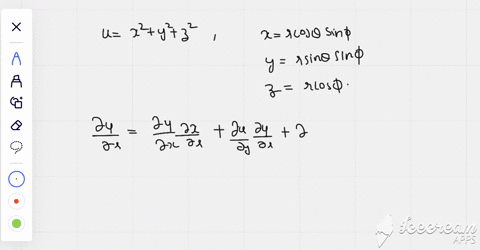 u = x² + y² + z² , x = r cosθ sinϕ
y = r sinθ sinϕ
z = r cosϕ.
∂u/∂r = ∂u/∂x ∂x/∂r + ∂u/∂y ∂y/∂r + ∂
Icecream
APPS